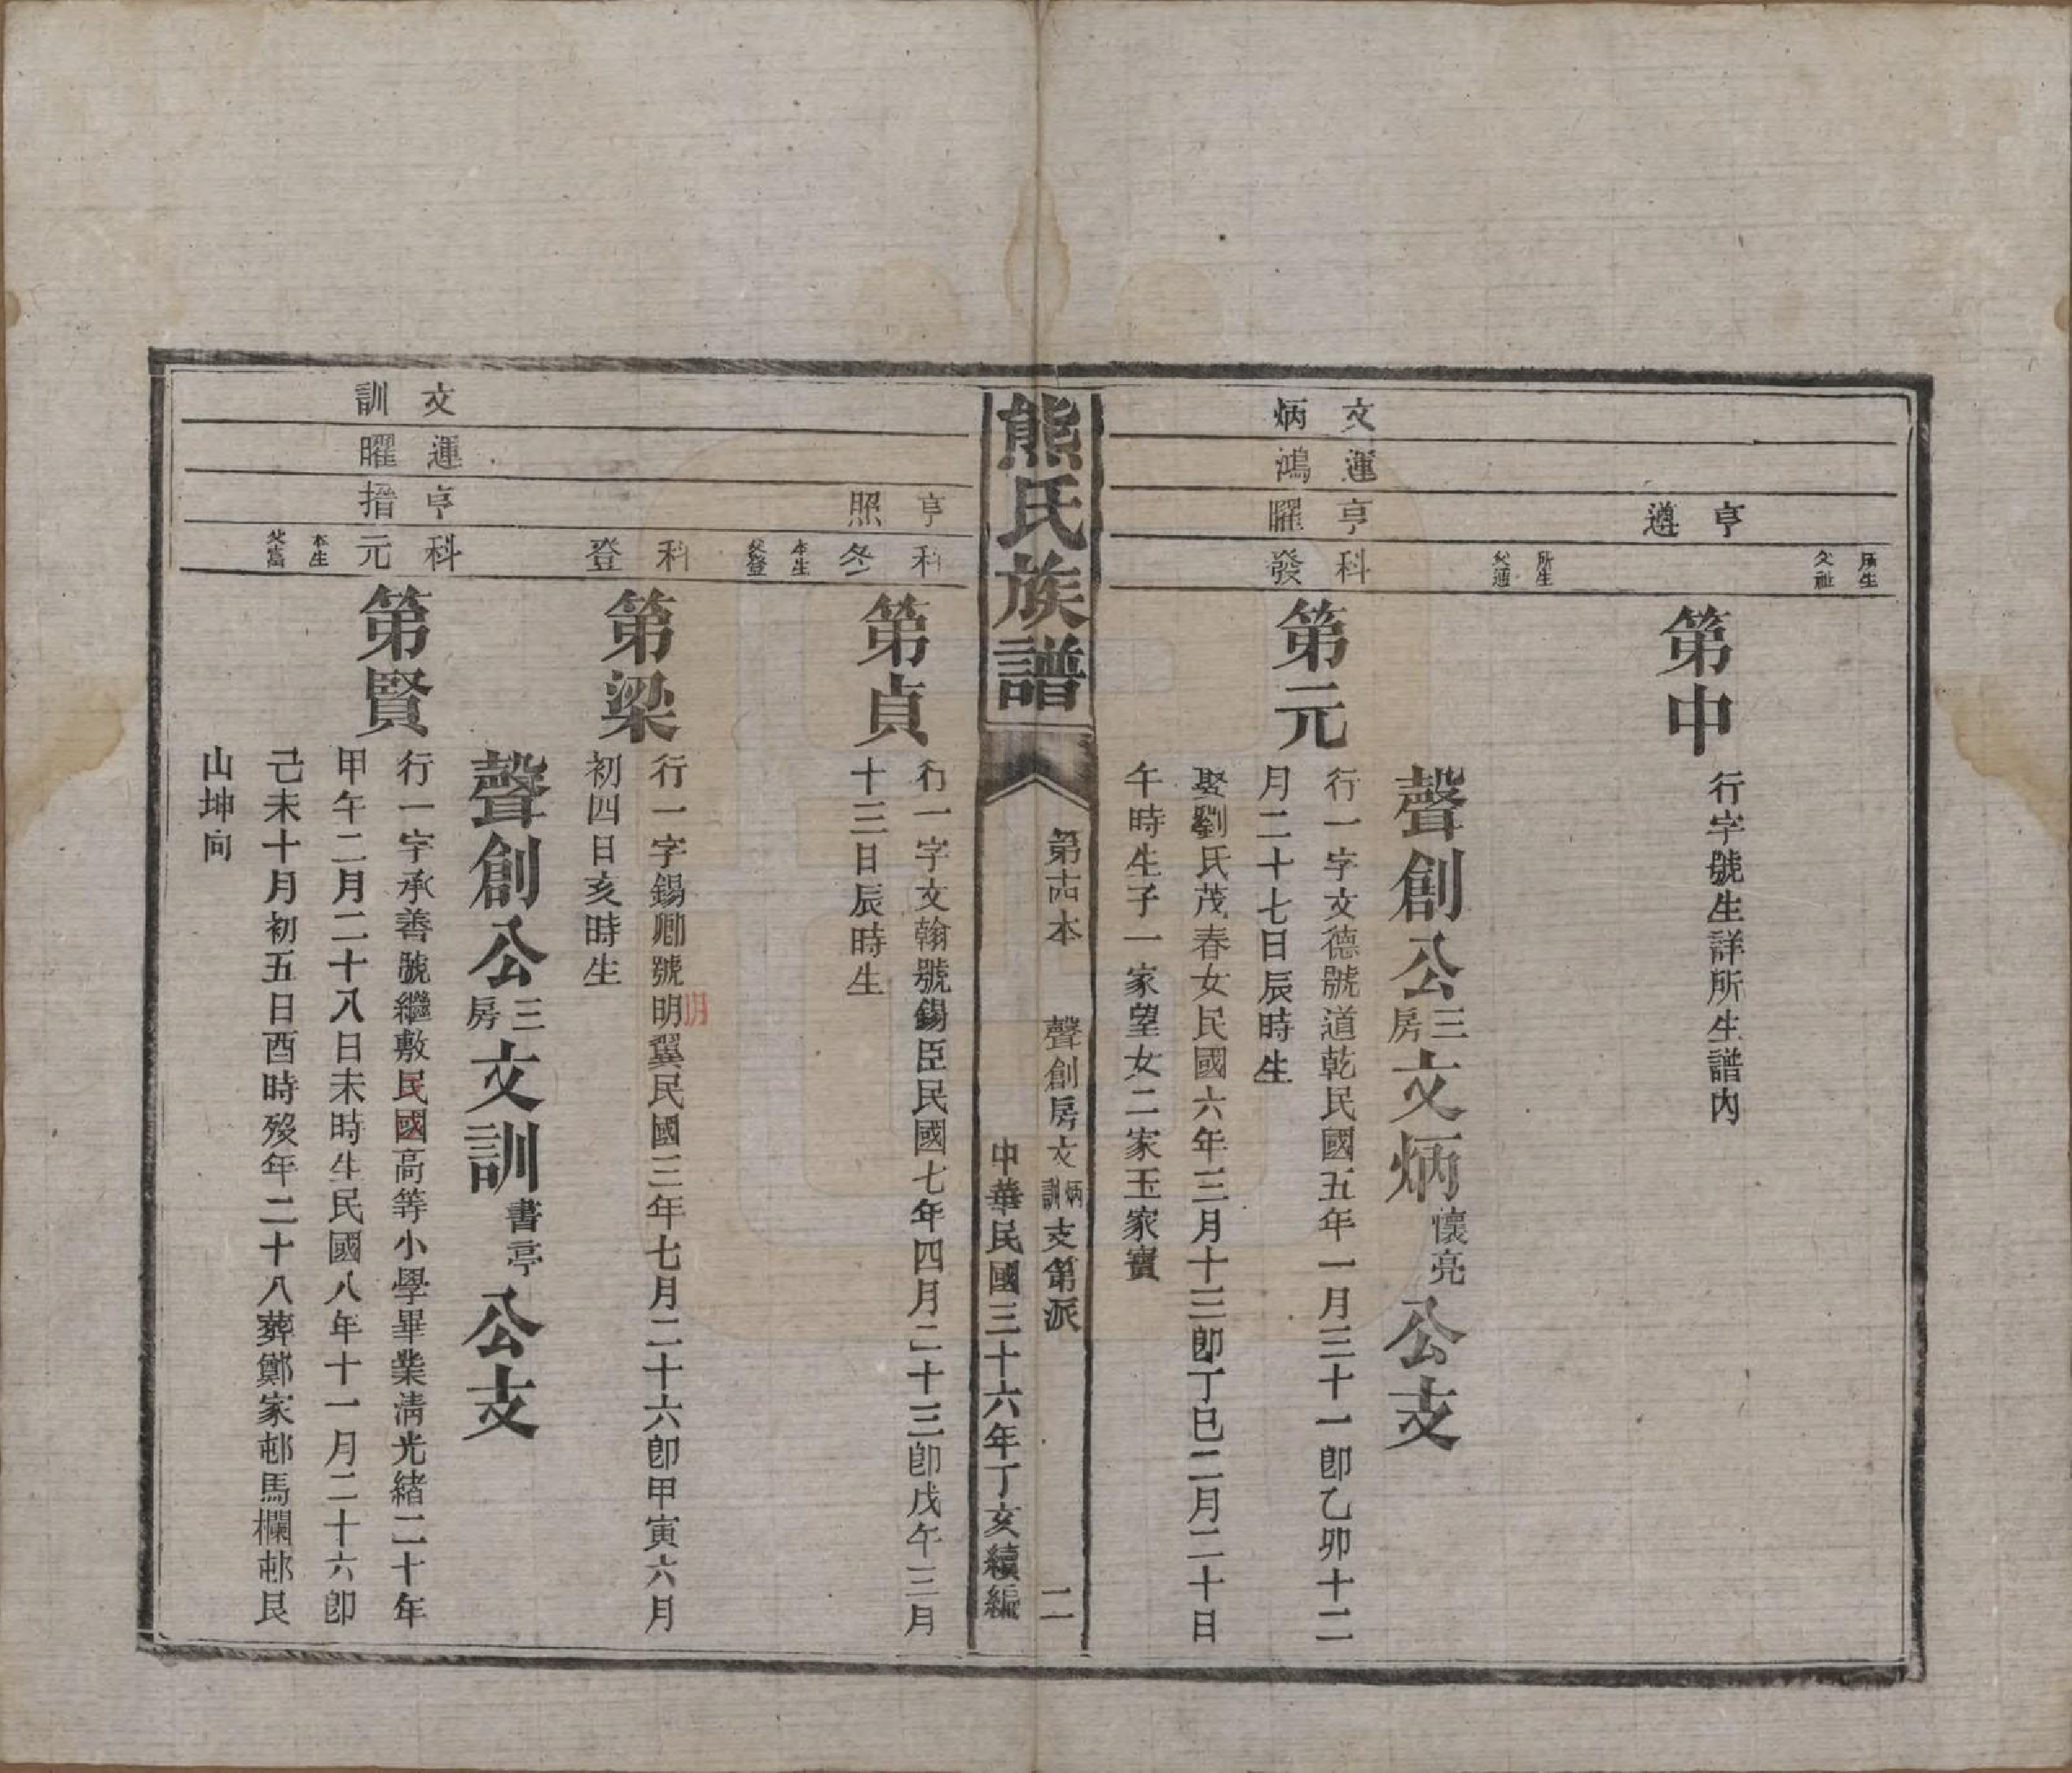 所生父祉
亨遵
所生父通
第中
行字號生詳所生譜內
聲創公三房文炳懷亮公支
文炳
運鴻
亨曜
科發
第元
行一字文德號道乾民國五年一月三十一卽乙卯十二
月二十七日辰時生
娶劉氏茂春女民國六年三月十三卽丁巳二月二十日
午時生子一家望女二家玉家寶
熊氏族譜
第卤本 聲創房文炳訓支第派 二
中華民國三十六年丁亥續編
亨照
科冬
本生父登
第貞
行一字文翰號錫臣民國七年四月二十三卽戊午三月
十三日辰時生
科登
第梁
行一字錫卿號明翼民國三年七月二十六卽甲寅六月
明
初四日亥時生
聲創公三房文訓書亭公支
文訓
運曜
亨搢
科元
本生父富
第賢
行一字承善號繼敷民國高等小學畢業淸光緒二十年
甲午二月二十八日未時生民國八年十一月二十六卽
己未十月初五日酉時歿年二十八葬鄭家邨馬欄邨艮
山坤向